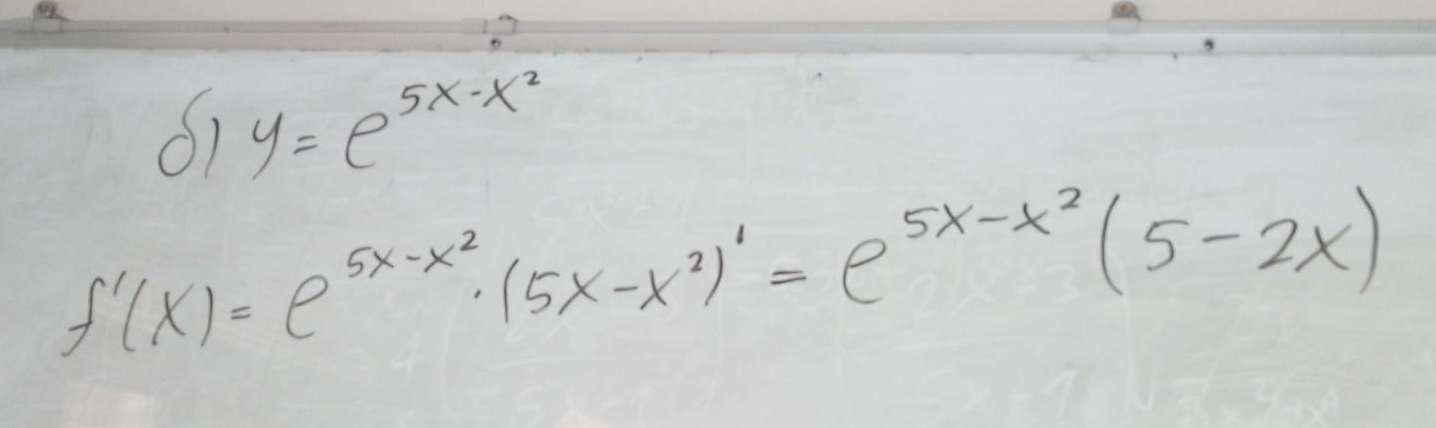 б) y = e^{5x-x^2}
f'(x) = e^{5x-x^2} · (5x-x^2)' = e^{5x-x^2} (5-2x)